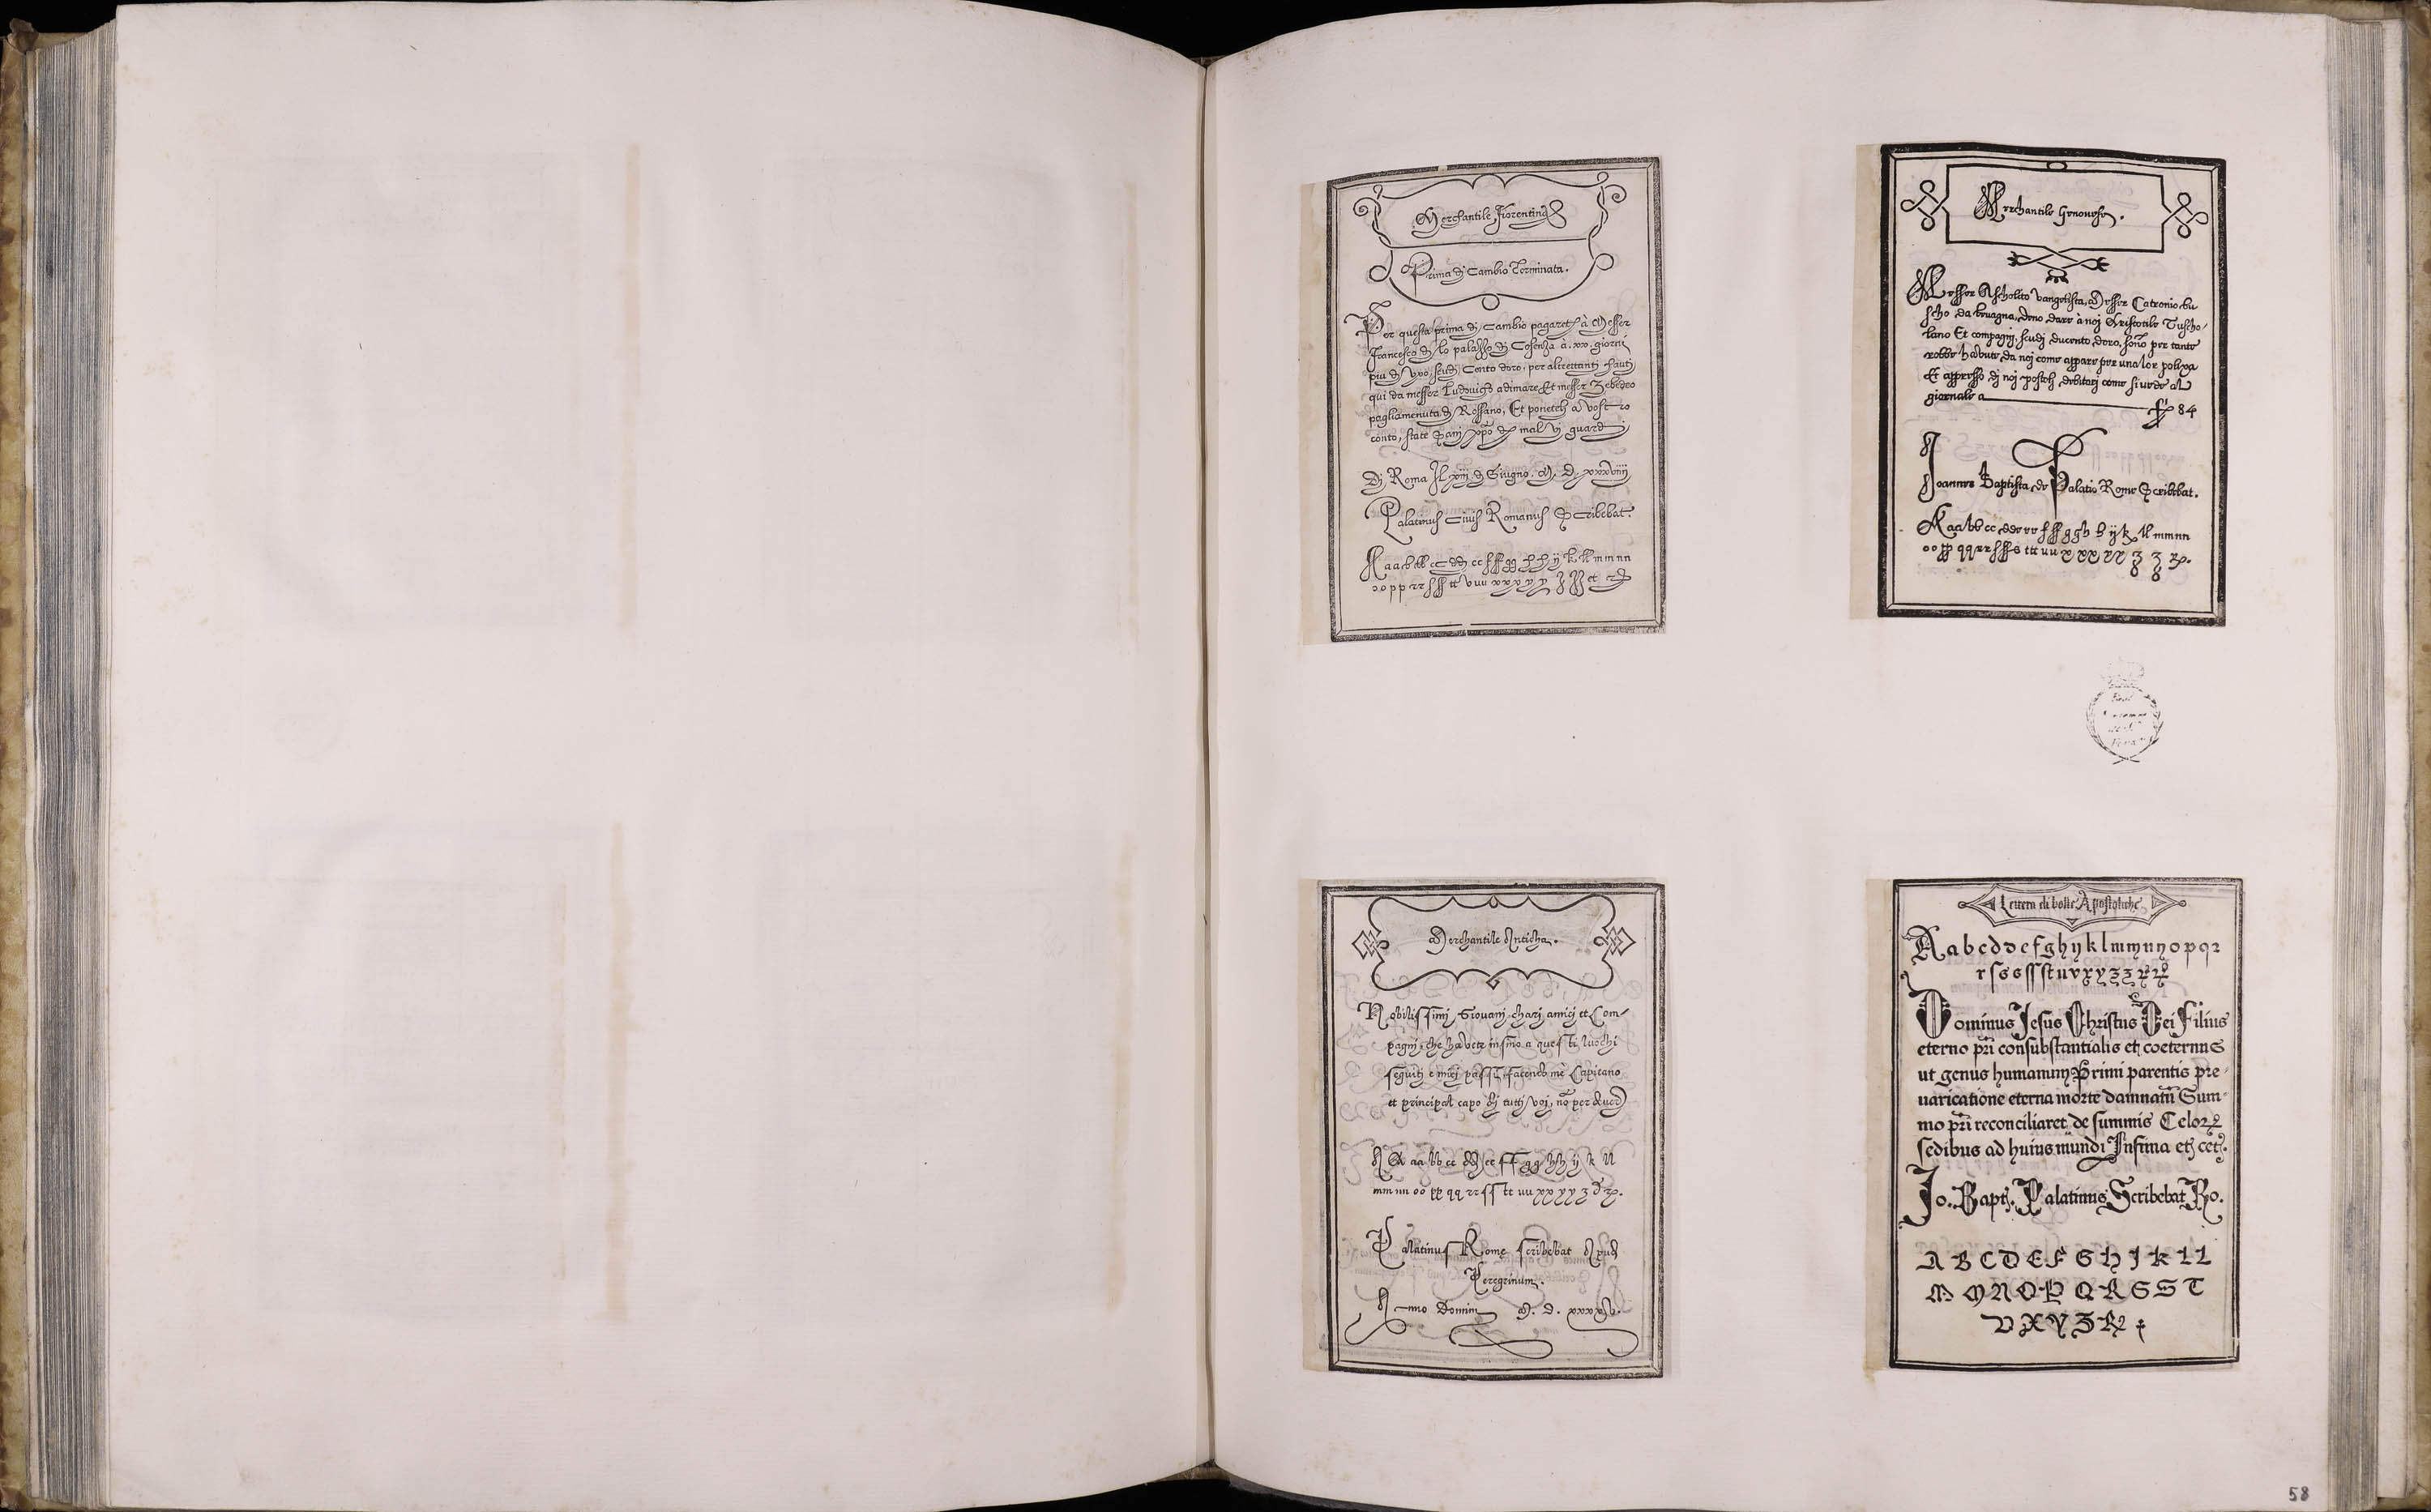 Merchantile Fiorentina
Prima di Cambio Terminata.
Per questa prima di Cambio pagarete à Messer
Francesco di lo palazzo di Cosenza à .xx. giorni
piu di uso, scudi Cento doro, per altrettanti hauti
qui da messer Ludovico adimare, et messer Zebedeo
pagliamenuta di Rossano, Et ponete à vostro
conto, state sani xpo di mal vi guardi
Di Roma Il xiij di Giugno. M. D. xxxviiij
Palatinus Civis Romanus Scribebat.
A a a b b b c c d d e e f ff g g h h ij k k ll m m n n
o o p p r r s ss tt v u u x x x y y z z z et
Merchantile Genovese.
Messer Ascholito Vangelista, Messer Catronio bu
scho da bevagna, deno dare à noi Aristotile Tuscho-
lano Et compagni, scudi ducento doro, sono per tante
robbe havute da noi come appare per una lor polixa
Et appresso di noi postoli debitori come si vede al
giornale a 84
Joannes Baptista de Palatio Rome Scribebat.
A a a b b c c d d e e f ff g g h h ij k ll m m n n
o o pp q q r r s ss s tt u u x x x y y z z
Merchantile Anticha.
Nobilissimi Giovani chari amici et Com-
pagni che havete insino a questi luochi
seguiti e miei passi facendo me Capitano
et principal capo di tutti voi, no per
A A a a b b c c d d e e f f g g h h ij k ll
m m n n o o pp q q r r s s tt u u x x y y z
Palatinus Rome scribebat Apud
Peregrinum.
Anno Domini M. D. xxxxv.
Lettera di bolle Apostoliche
A a b c d d e f g h y k l m m n n o p q r
r s s s ss st u v x y z z
Dominus Jesus Christus Dei Filius
eterno pri consubstantialis et coeternus
ut genus humanum Primi parentis pre-
uaricatione eterna morte damnatu Sum-
mo pri reconciliaret de summis Celor
sedibus ad huius mundi Infima et cet.
Jo. Bapt. Palatinus Scribebat Ro.
A B C D E F G H I K L L
M M N O P Q R S S T
V X Y Z
58